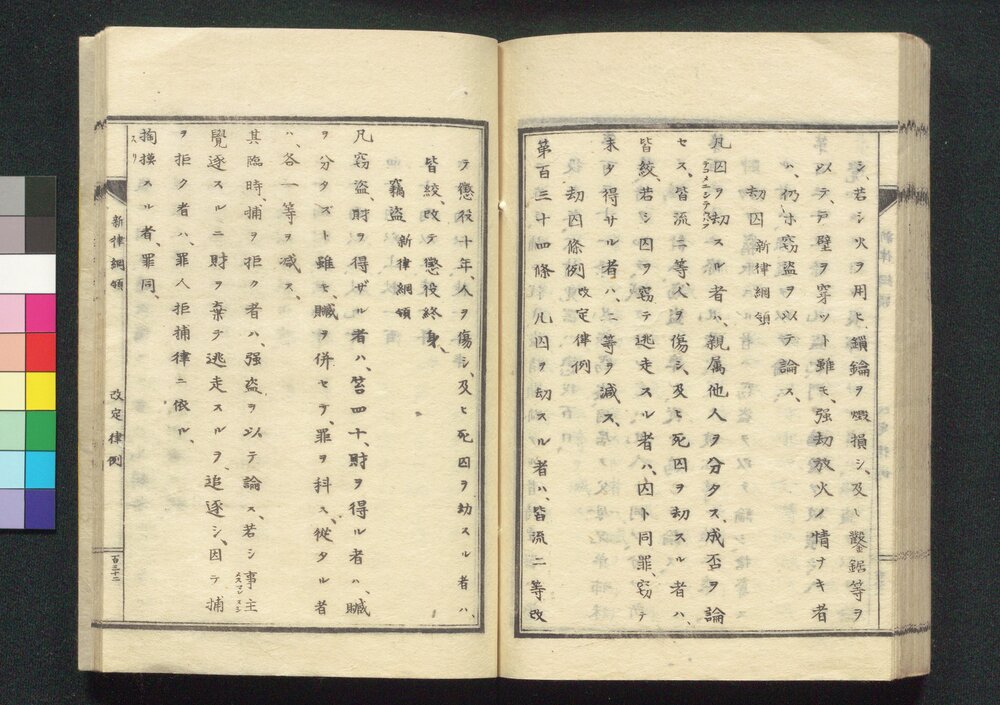 シ、若シ火ヲ用ヒ鎖鑰ヲ燬損シ、及ヒ鑿鋸等ヲ
以テ、戸壁ヲ穿ツト雖モ、强劫放火ノ情ナキ者
ハ、仍ホ窃盗ヲ以テ論ス、
劫囚 新律綱領
凡囚ヲ劫スル者ハ、親属他人ヲ分タス、成否ヲ論
セス、皆流二等、人ヲ傷シ、及ヒ死囚ヲ劫スル者ハ、
皆絞、若シ囚ヲ窃テ逃走スル者ハ、囚ト同罪、窃テ
未タ得サル者ハ、二等ヲ減ス、
劫囚條例 改定律例
第百三十四條 凡囚ヲ劫スル者ハ、皆流二等改
テ懲役十年、人ヲ傷シ、及ヒ死囚ヲ劫スル者ハ、
皆絞、改テ懲役終身、
竊盗 新律綱領
凡窃盗、財ヲ得ザル者ハ、笞四十、財ヲ得ル者ハ、贓
ヲ分タズト雖モ、贓ヲ併セテ、罪ヲ科ス、從タル者
ハ、各一等ヲ减ス、
其臨時、捕ヲ拒ク者ハ、强盗ヲ以テ論ス、若シ事主
覺逐スルニ財ヲ棄テ逃走スルヲ、追逐シ、因テ捕
ヲ拒ク者ハ、罪人拒捕律ニ依ル、
掏摸スル者、罪同、
スリ
新律綱領
改定律例
百三十二